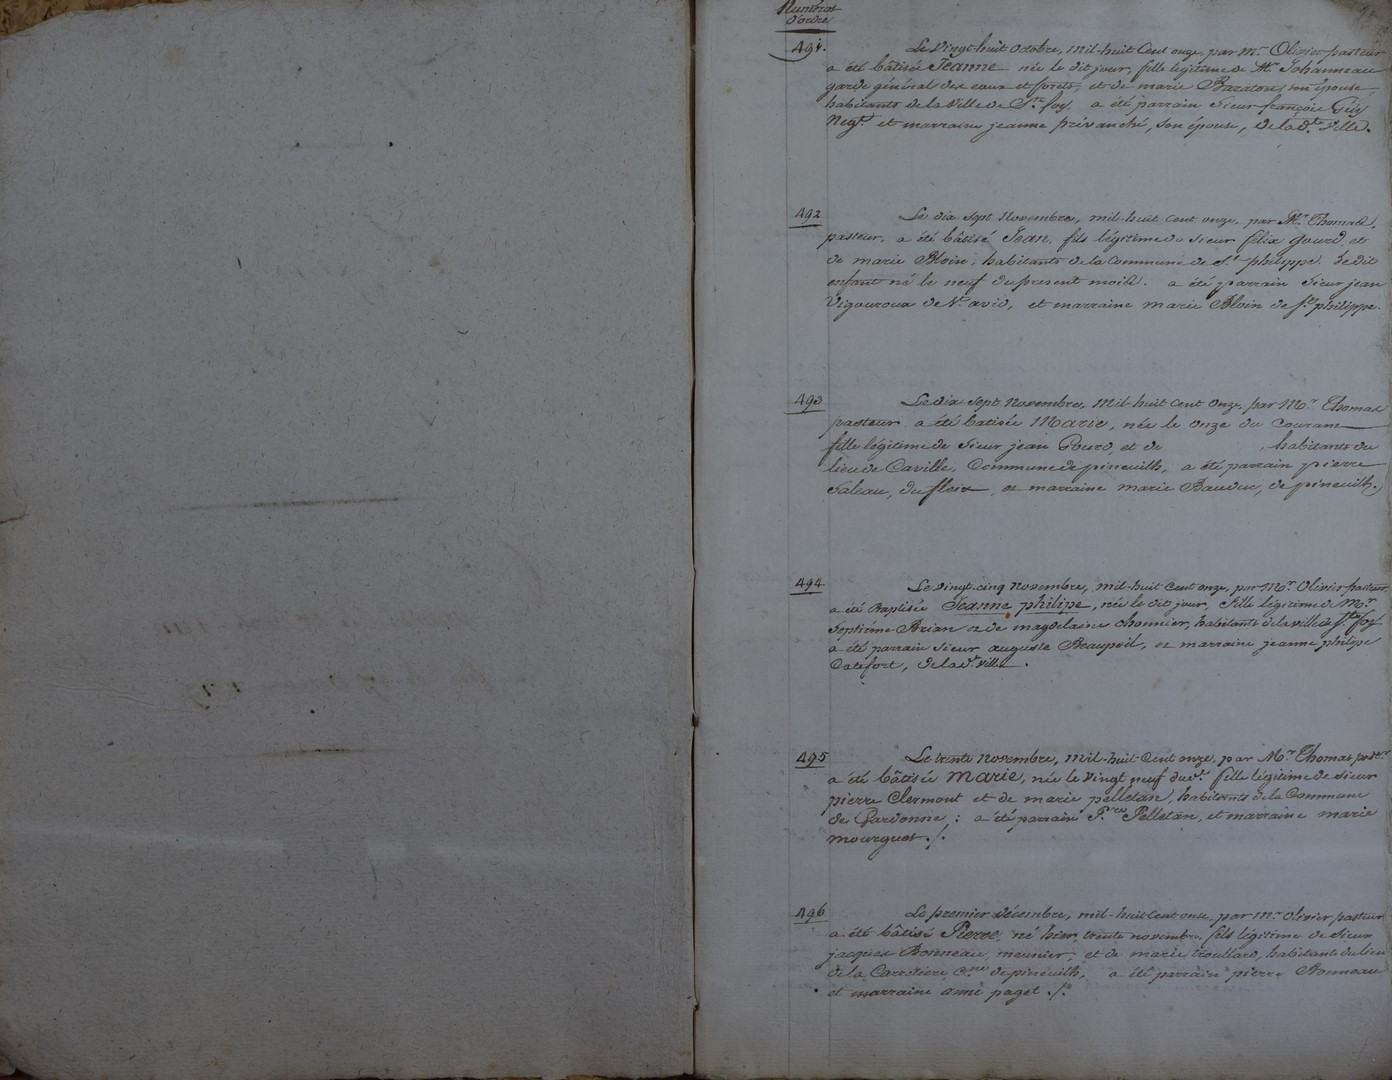 Numéros
d'ordre
491. Le vingt-huit octobre, mil-huit cent onze, par Mr Olivier pasteur
a été bâtisée Jeanne née le dit jour, fille légitime de Mr Johanneau
garde général des eaux et forets, et de marie Bazaton, son épouse,
habitants de la ville de Ste foy. a été parrain Sieur françois
Negt. et marraine jeanne prévanché, son épouse, de la dte ville.
492 Le dix sept Novembre, mil-huit cent onze, par Mr Thomas,
pasteur, a été bâtisé Jean, fils légitime du sieur félix gourd, et
de marie Bloin, habitants de la commune de St philippe. le dit
enfant né le neuf du present mois. a été parrain Sieur jean
Vigouroux de St avid, et marraine marie Bloin de St philippe.
493 Le dix sept Novembre, Mil-huit cent onze, par Mr Thomas
pasteur a été batisée Marie, née le onze du courant
fille légitime de Sieur jean Gourd, et de , habitants du
lieu de Caville, Commune de pineuilh, a été parrain pierre
Faleau, du fleix, et marraine marie Bauduc, de pineuilh.
494 Le vingt-cinq Novembre, mil-huit cent onze, par Mr Olivier pasteur
a été Baptisée Jeanne philipe, née le dit jour, fille légitime de Mr
Septième Brian et de magdelaine chonnier, habitants de la ville de Ste foy.
a été parrain sieur auguste Beaupoil, et marraine jeanne philipe
Catefort, de la dt ville.
495 Le trente Novembre, mil-huit cent onze, par Mr Thomas pastr
a été bâtisée Marie, née le vingt neuf dudt fille légitime de sieur
pierre Clermont et de marie pelletan, habitants de la Commune
de Gardonne; a été parrain Pre Pelletan, et marraine marie
mourguet ./.
496 Le premier décembre, mil-huit cent onze, par Mr Olivier pasteur
a été bâtisé Pierre, né hier, trente novembre, fils légitime de Sieur
jacques Bonneau, meunier, et de marie trouillard, habitants du lieu
de la Carretiere, Cne de pineuilh, a été parrain pierre Bonneau
et marraine anne paget ./.